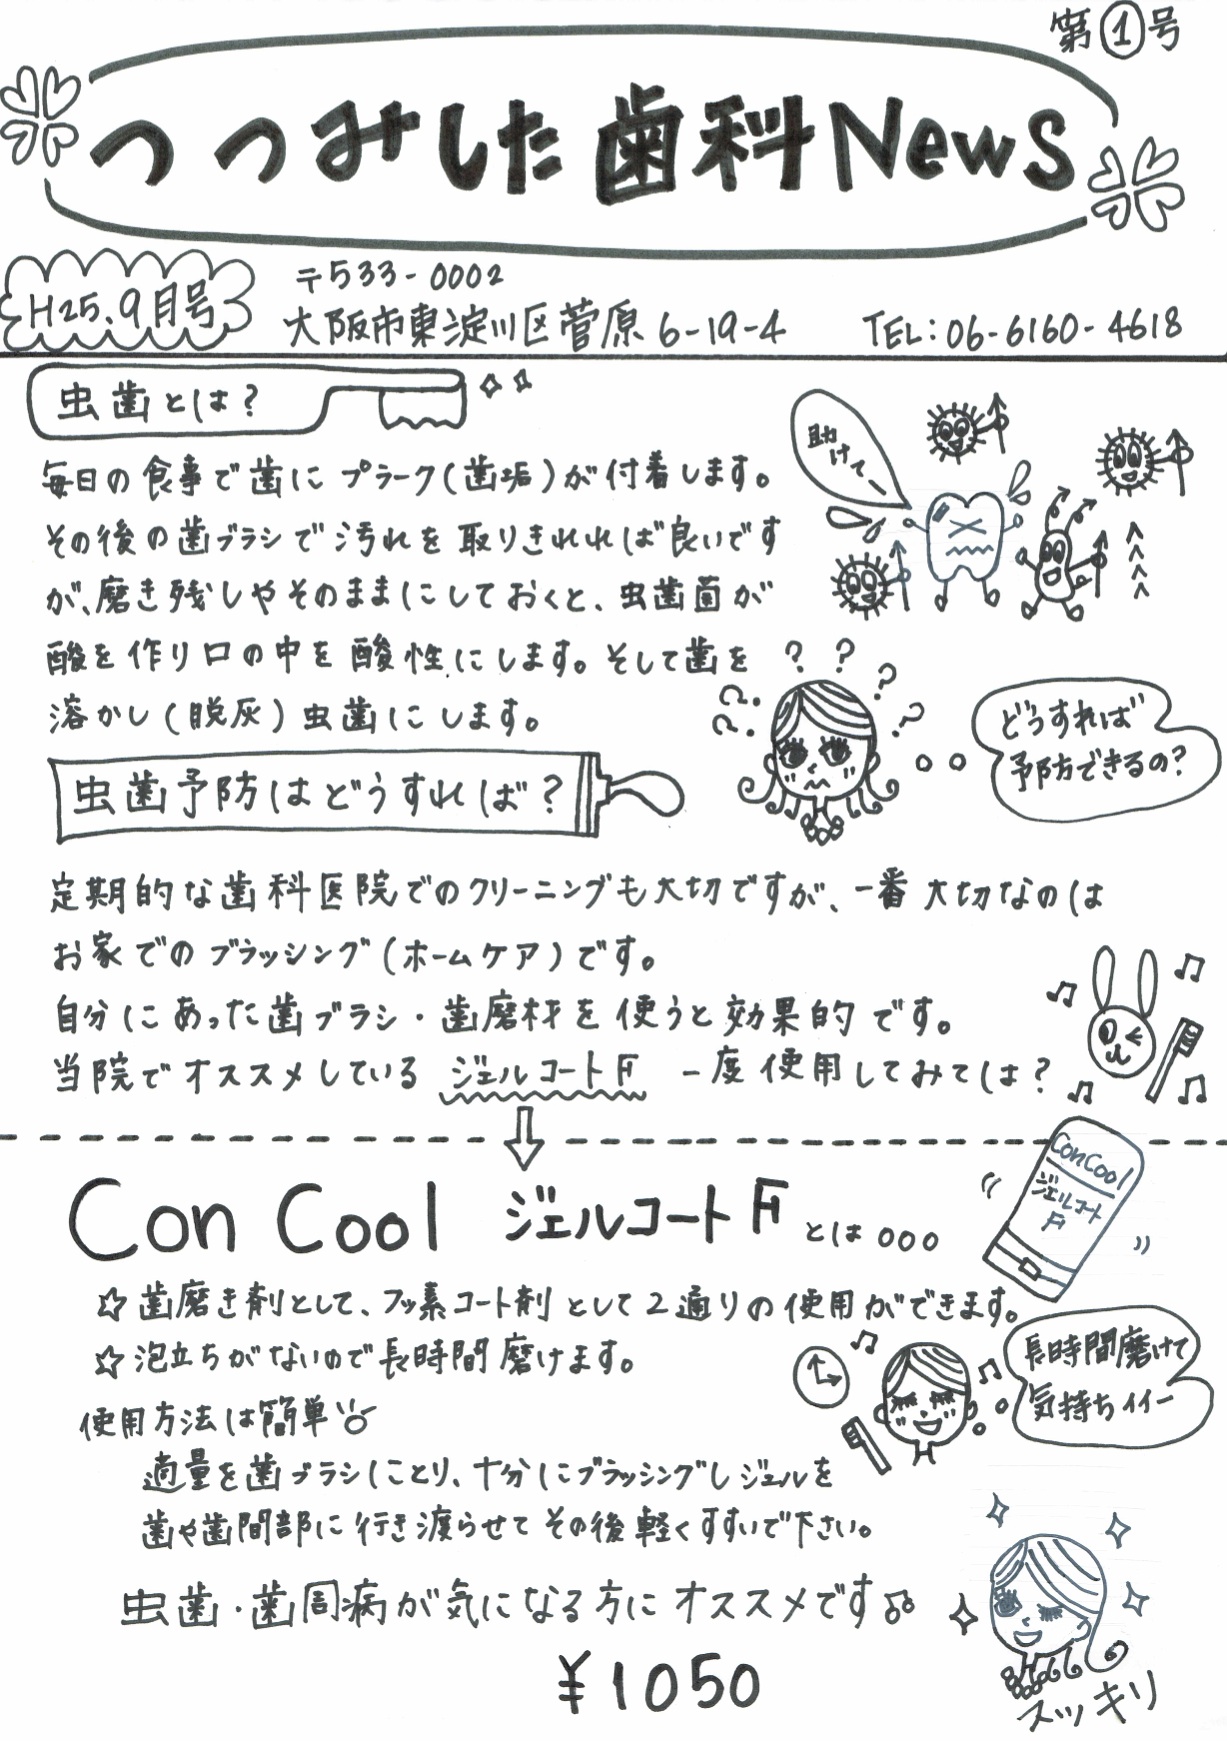 第①号
つつみした歯科News
H25.9月号
〒533-0002
大阪市東淀川区菅原6-19-4 TEL:06-6160-4618
虫歯とは?
助けてー
毎日の食事で歯にプラーク(歯垢)が付着します。
その後の歯ブラシで汚れを取りきれれば良いです
が、磨き残しやそのままにしておくと、虫歯菌が
酸を作り口の中を酸性にします。そして歯を
溶かし(脱灰)虫歯にします。
? ? ? ? ? ? ?
どうすれば
予防できるの?
虫歯予防はどうすれば?
定期的な歯科医院でのクリーニングも大切ですが、一番大切なのは
お家でのブラッシング(ホームケア)です。
自分にあった歯ブラシ・歯磨材を使うと効果的です。
当院でオススメしている ジェルコートF 一度使用してみては?
Con Cool ジェルコートF とは...
ConCool
ジェルコート
F
☆歯磨き剤として、フッ素コート剤として2通りの使用ができます。
☆泡立ちがないので長時間磨けます。
長時間磨けて
気持ちイイー
使用方法は簡単
適量を歯ブラシにとり、十分にブラッシングしジェルを
歯や歯間部に行き渡らせてその後軽くすすいで下さい。
虫歯・歯周病が気になる方にオススメです♫
¥1050
スッキリ